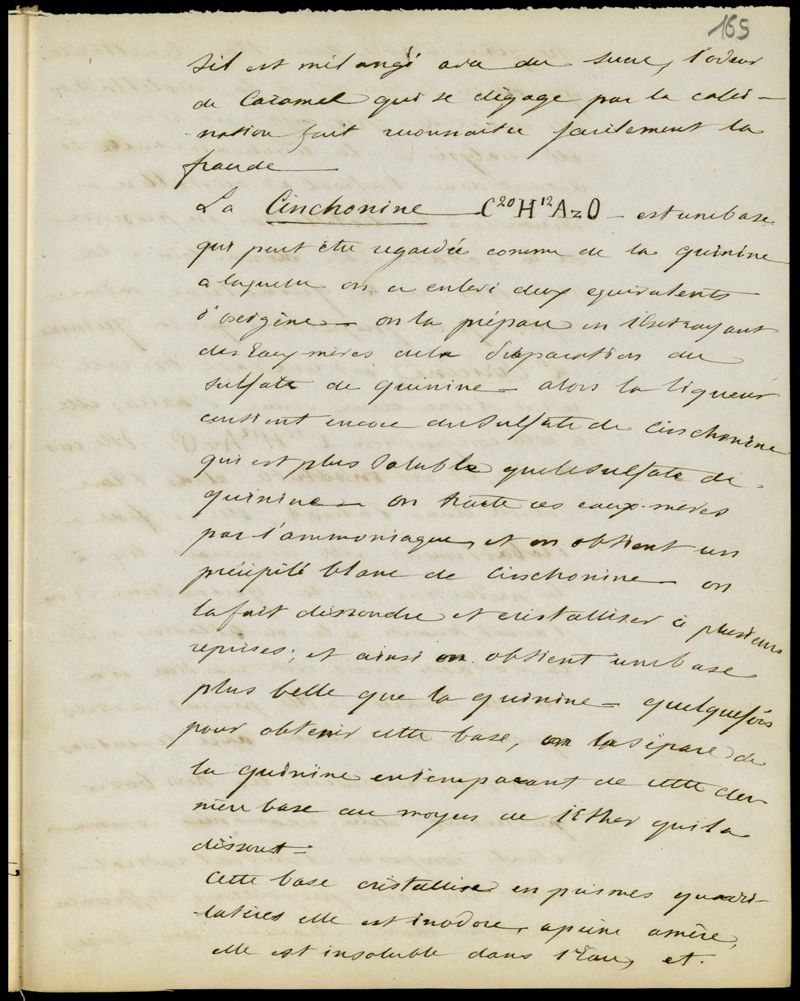 165
S'il est mélangé avec du sucre, l'odeur
de Caramel qui se dégage par la calci-
nation fait reconnaître facilement la
fraude —
La Cinchonine — C²⁰H¹²AzO — est une base
qui peut être regardée comme de la quinine
a laquelle on a enlevé deux equivalents
d'oxigène — on la prépare en l'extrayant
des Eaux mères de la préparation du
sulfate de quinine — alors la liqueur
contient encore du sulfate de Cinchonine
qui est plus soluble que le sulfate de
quinine — on traite ces eaux-mères
par l'ammoniaque, et on obtient un
précipité blanc de Cinchonine — on
la fait dissoudre et cristalliser à plusieurs
reprises; et ainsi on obtient une base
plus belle que la quinine — quelquefois
pour obtenir cette base, on la sépare de
la quinine en s'emparant de cette der-
nière base au moyen de l'Ether qui la
dissout —
Cette base cristallise en prismes quadri-
latères elle est inodore, a peine amère,
elle est insoluble dans l'Eau, et.